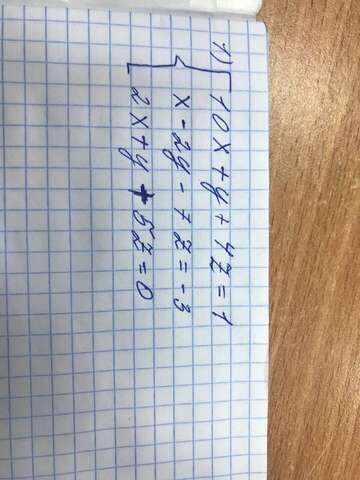 1) { 10x + y + 4z = 1
x - 2y - 7z = -3
2x + y + 5z = 0